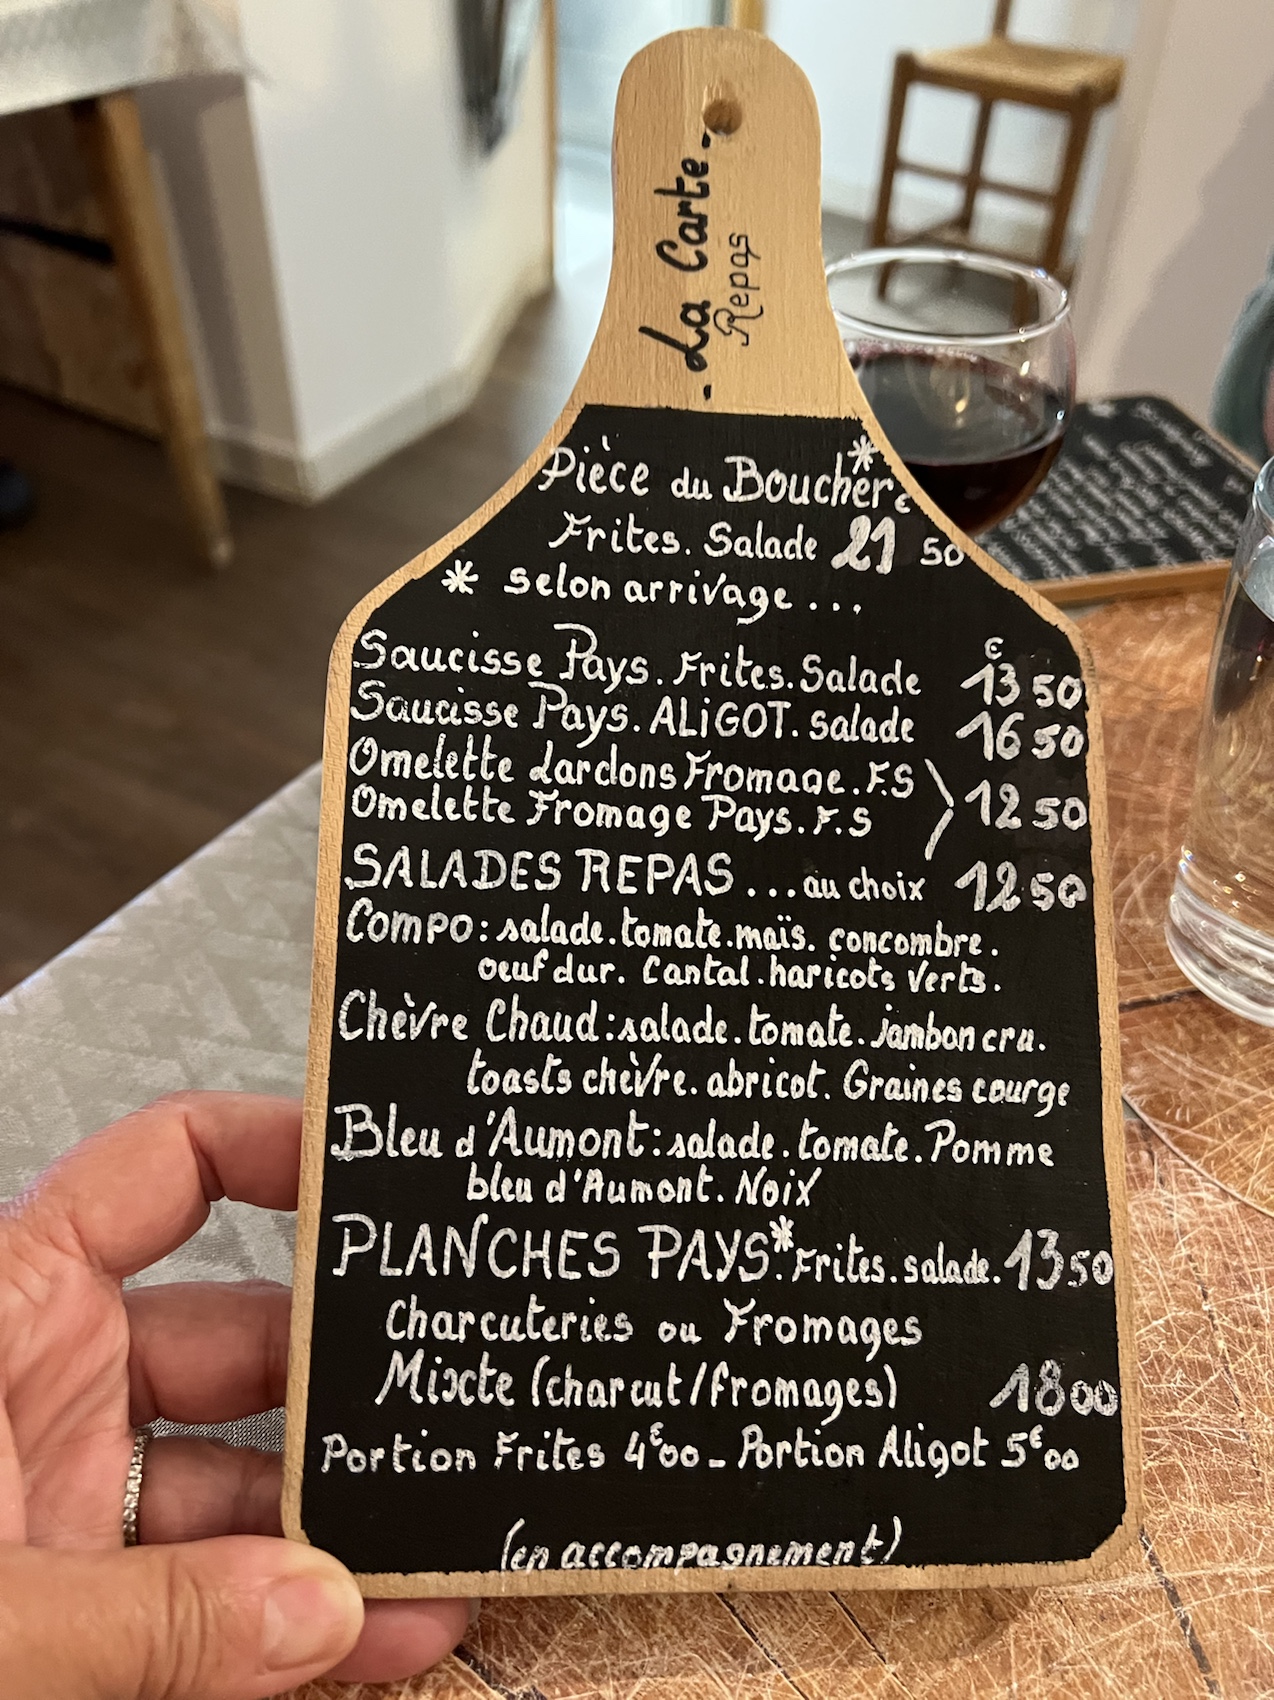 - La Carte -
Repas
Pièce du Boucher*
Frites. Salade 21€50
* selon arrivage...
Saucisse Pays. Frites. Salade 13€50
Saucisse Pays. ALiGOT. salade 16 50
Omelette Lardons Fromage. F.S
Omelette Fromage Pays. F.S } 12 50
SALADES REPAS ... au choix 12 50
Compo: salade. tomate. maïs. concombre.
oeuf dur. Cantal. haricots verts.
Chèvre Chaud: salade. tomate. jambon cru.
toasts chèvre. abricot. Graines courge
Bleu d'Aumont: salade. tomate. Pomme
bleu d'Aumont. Noix
PLANCHES PAYS*. Frites. salade. 13 50
Charcuteries ou Fromages
Mixcte (charcut/fromages) 18 00
Portion Frites 4€00 - Portion Aligot 5€00
(en accompagnement)